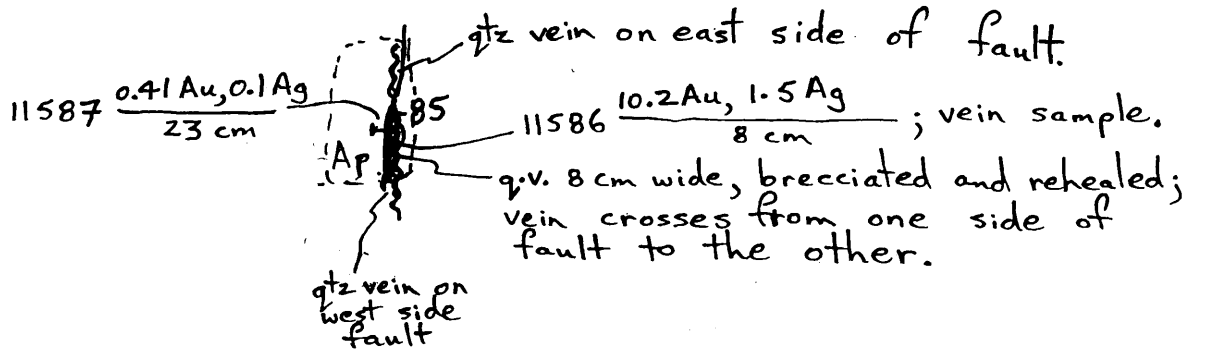 qtz vein on east side of fault.
11587 0.41 Au, 0.1 Ag
23 cm
85
11586 10.2 Au, 1.5 Ag ; vein sample.
8 cm
Ap
q.v. 8 cm wide, brecciated and rehealed;
vein crosses from one side of
fault to the other.
qtz vein on
west side
fault